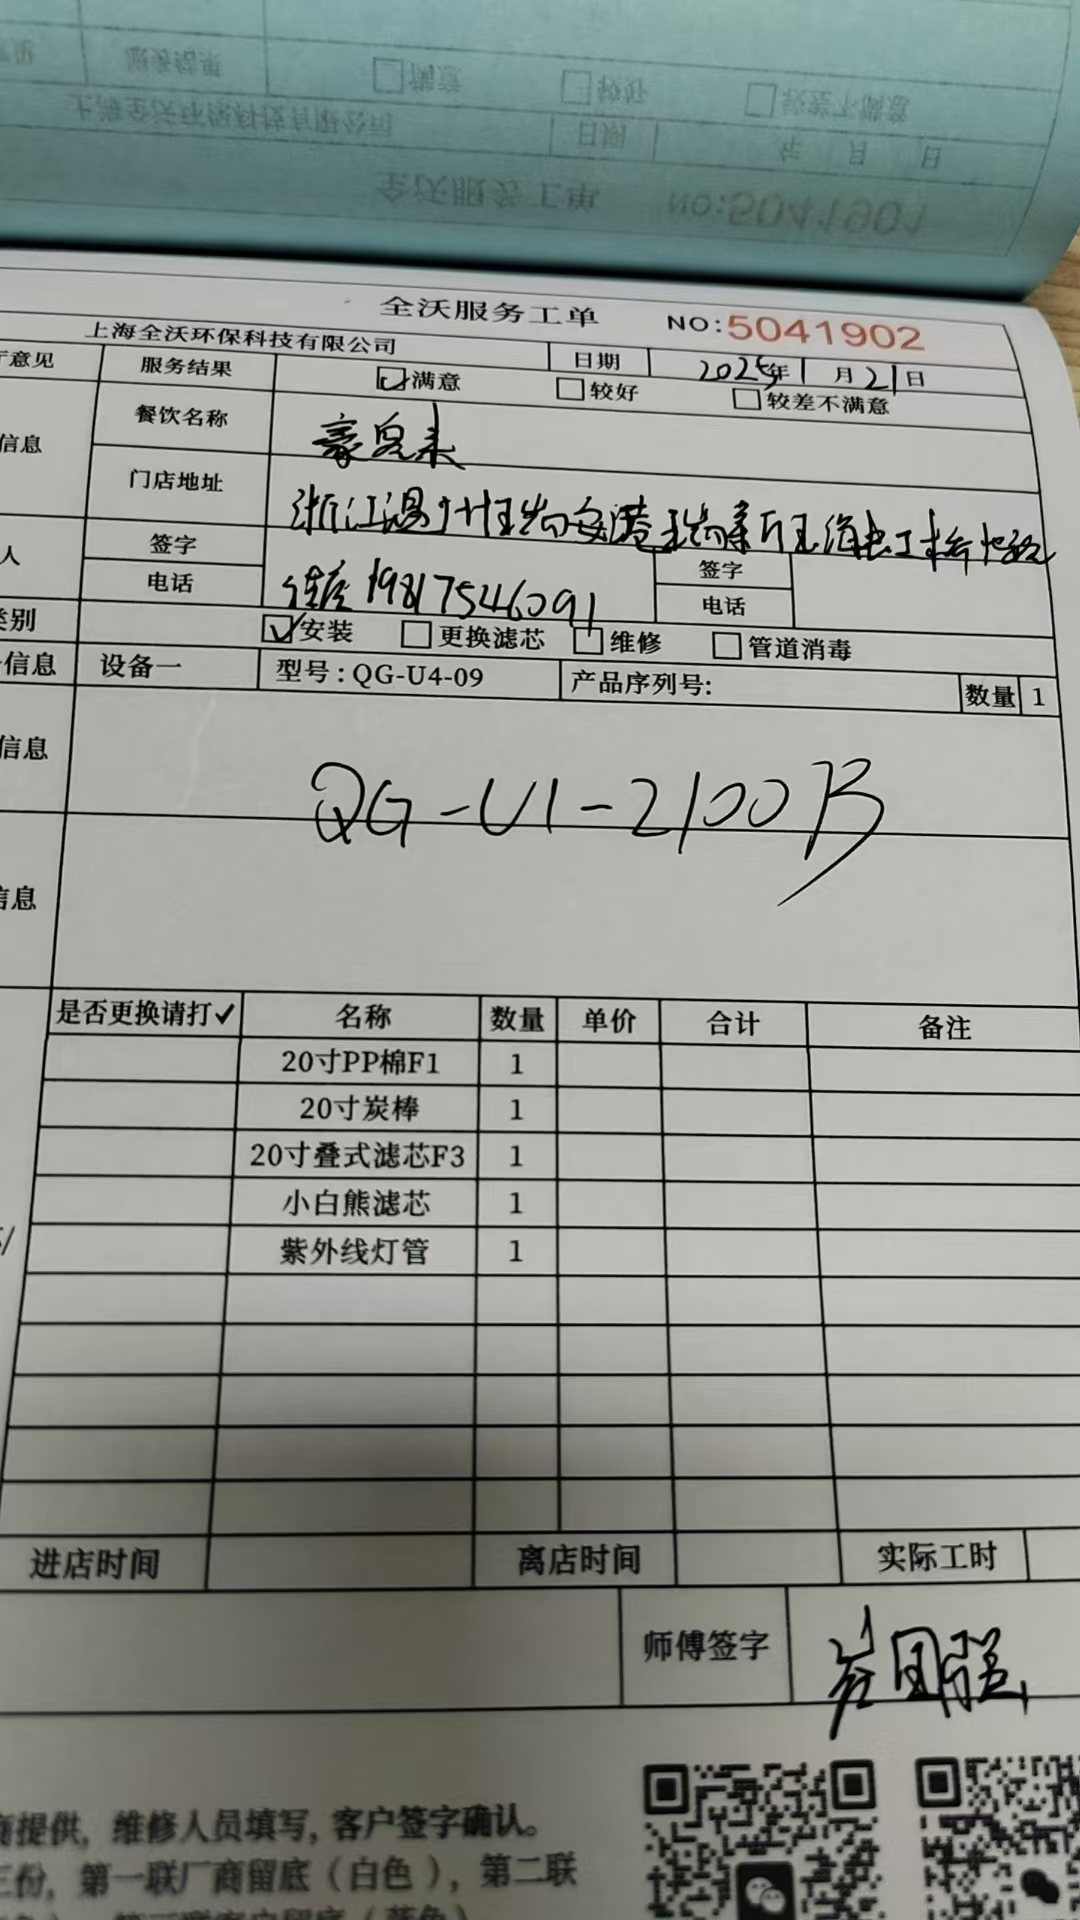 全沃服务工单 NO:5041901
上海全沃环保科技有限公司 日期 年 月 日
服务结果 满意 较好 较差不满意
全沃服务工单 NO:5041902
上海全沃环保科技有限公司 日期 2025年1月21日
意见 服务结果 满意 较好 较差不满意
信息 餐饮名称 豪客来
门店地址 浙江温州
人 签字 签字
电话 19817546091 电话
类别 安装 更换滤芯 维修 管道消毒
信息 设备一 型号:QG-U4-09 产品序列号: 数量 1
信息
QG-U1-2100B
信息
是否更换请打✓ 名称 数量 单价 合计 备注
20寸PP棉F1 1
20寸炭棒 1
20寸叠式滤芯F3 1
小白熊滤芯 1
紫外线灯管 1
进店时间 离店时间 实际工时
师傅签字
商提供, 维修人员填写, 客户签字确认。
三份, 第一联厂商留底(白色), 第二联